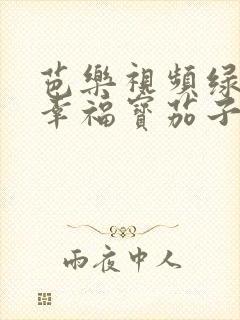 芭樂視頻绿
幸福寶茄子
雨夜中人